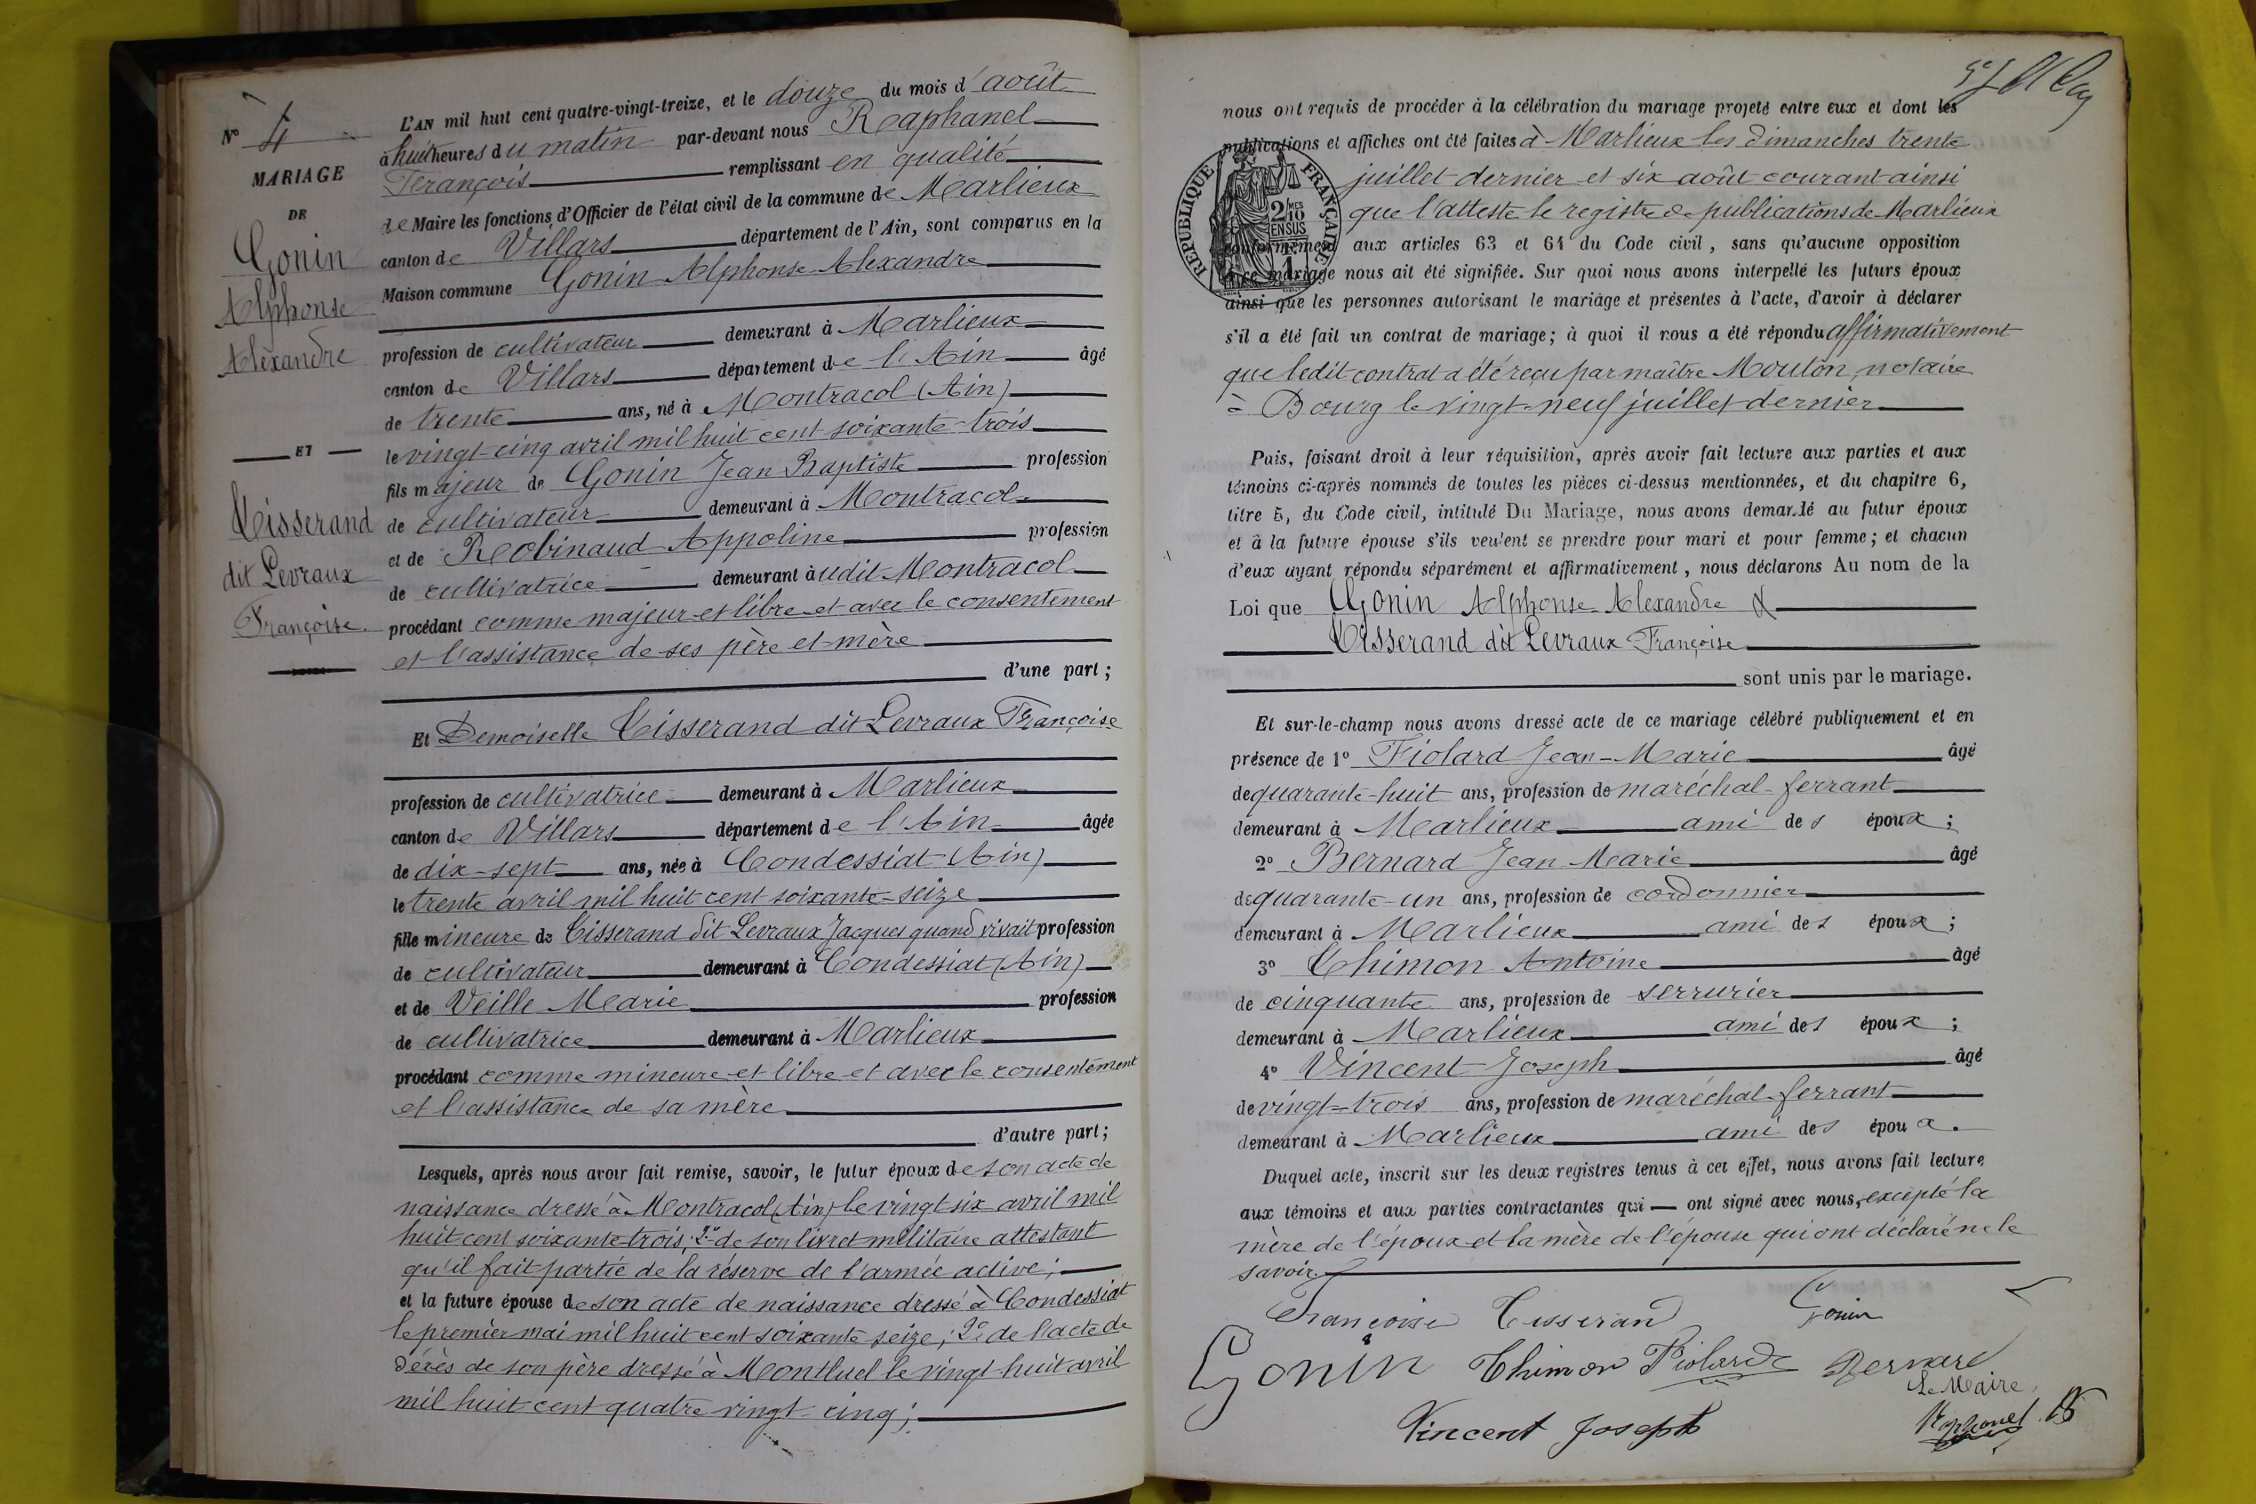 N° 4
MARIAGE
DE
Gonin
Alphonse
Alexandre
ET
Tisserand
dit Levraux
Françoise
L'AN mil huit cent quatre-vingt-treize, et le douze du mois d'août
à huit heures du matin par-devant nous Raphanel
François remplissant en qualité
de Maire les fonctions d'Officier de l'état civil de la commune de Marlieux
canton de Villars département de l'Ain, sont comparus en la
Maison commune Gonin Alphonse Alexandre
profession de cultivateur demeurant à Marlieux
canton de Villars département de l'Ain âgé
de trente ans, né à Montracol (Ain)
le vingt-cinq avril mil huit cent soixante-trois
fils majeur de Gonin Jean Baptiste profession
de cultivateur demeurant à Montracol
et de Robinaud Appoline profession
de cultivatrice demeurant audit Montracol
procédant comme majeur et libre et avec le consentement
et l'assistance de ses père et mère
d'une part;
Et Demoiselle Tisserand dit Levraux Françoise
profession de cultivatrice demeurant à Marlieux
canton de Villars département de l'Ain âgée
de dix-sept ans, née à Condessiat (Ain)
le trente avril mil huit cent soixante-seize
fille mineure de Tisserand dit Levraux Jacques quand vivait profession
de cultivateur demeurant à Condessiat (Ain)
et de Veille Marie profession
de cultivatrice demeurant à Marlieux
procédant comme mineure et libre et avec le consentement
et l'assistance de sa mère
d'autre part;
Lesquels, après nous avoir fait remise, savoir, le futur époux de son acte de
naissance dressé à Montracol (Ain) le vingt six avril mil
huit cent soixante-trois; 2° de son livret militaire attestant
qu'il fait partie de la réserve de l'armée active;
et la future épouse de son acte de naissance dressé à Condessiat
le premier mai mil huit cent soixante seize; 2° de l'acte de
décès de son père dressé à Montluel le vingt huit avril
mil huit cent quatre vingt-cinq;
nous ont requis de procéder à la célébration du mariage projeté entre eux et dont les
publications et affiches ont été faites à Marlieux les dimanches trente
juillet dernier et six août courant ainsi
que l'atteste le registre de publications de Marlieux
REPUBLIQUE FRANÇAISE
2 MES
10
EN SUS
conformément aux articles 63 et 64 du Code civil, sans qu'aucune opposition
à ce mariage nous ait été signifiée. Sur quoi nous avons interpellé les futurs époux
ainsi que les personnes autorisant le mariage et présentes à l'acte, d'avoir à déclarer
s'il a été fait un contrat de mariage; à quoi il nous a été répondu affirmativement
que ledit contrat a été reçu par maître Mouton, notaire
à Bourg le vingt-neuf juillet dernier
Puis, faisant droit à leur réquisition, après avoir fait lecture aux parties et aux
témoins ci-après nommés de toutes les pièces ci-dessus mentionnées, et du chapitre 6,
titre 5, du Code civil, intitulé Du Mariage, nous avons demandé au futur époux
et à la future épouse s'ils veulent se prendre pour mari et pour femme; et chacun
d'eux ayant répondu séparément et affirmativement, nous déclarons Au nom de la
Loi que Gonin Alphonse Alexandre &
Tisserand dit Levraux Françoise
sont unis par le mariage.
Et sur-le-champ nous avons dressé acte de ce mariage célébré publiquement et en
présence de 1° Fiolard Jean-Marie âgé
de quarante-huit ans, profession de maréchal-ferrant
demeurant à Marlieux ami des époux;
2° Bernard Jean Marie âgé
de quarante-un ans, profession de cordonnier
demeurant à Marlieux ami des époux;
3° Thimon Antoine âgé
de cinquante ans, profession de serrurier
demeurant à Marlieux ami des époux;
4° Vincent Joseph âgé
de vingt-trois ans, profession de maréchal-ferrant
demeurant à Marlieux ami des époux.
Duquel acte, inscrit sur les deux registres tenus à cet effet, nous avons fait lecture
aux témoins et aux parties contractantes qui ont signé avec nous, excepté la
mère de l'époux et la mère de l'épouse qui ont déclaré ne le
savoir
Françoise Tisserand Gonin
Gonin Thimon Fiolard Bernard
Le Maire,
Vincent Joseph Raphanel